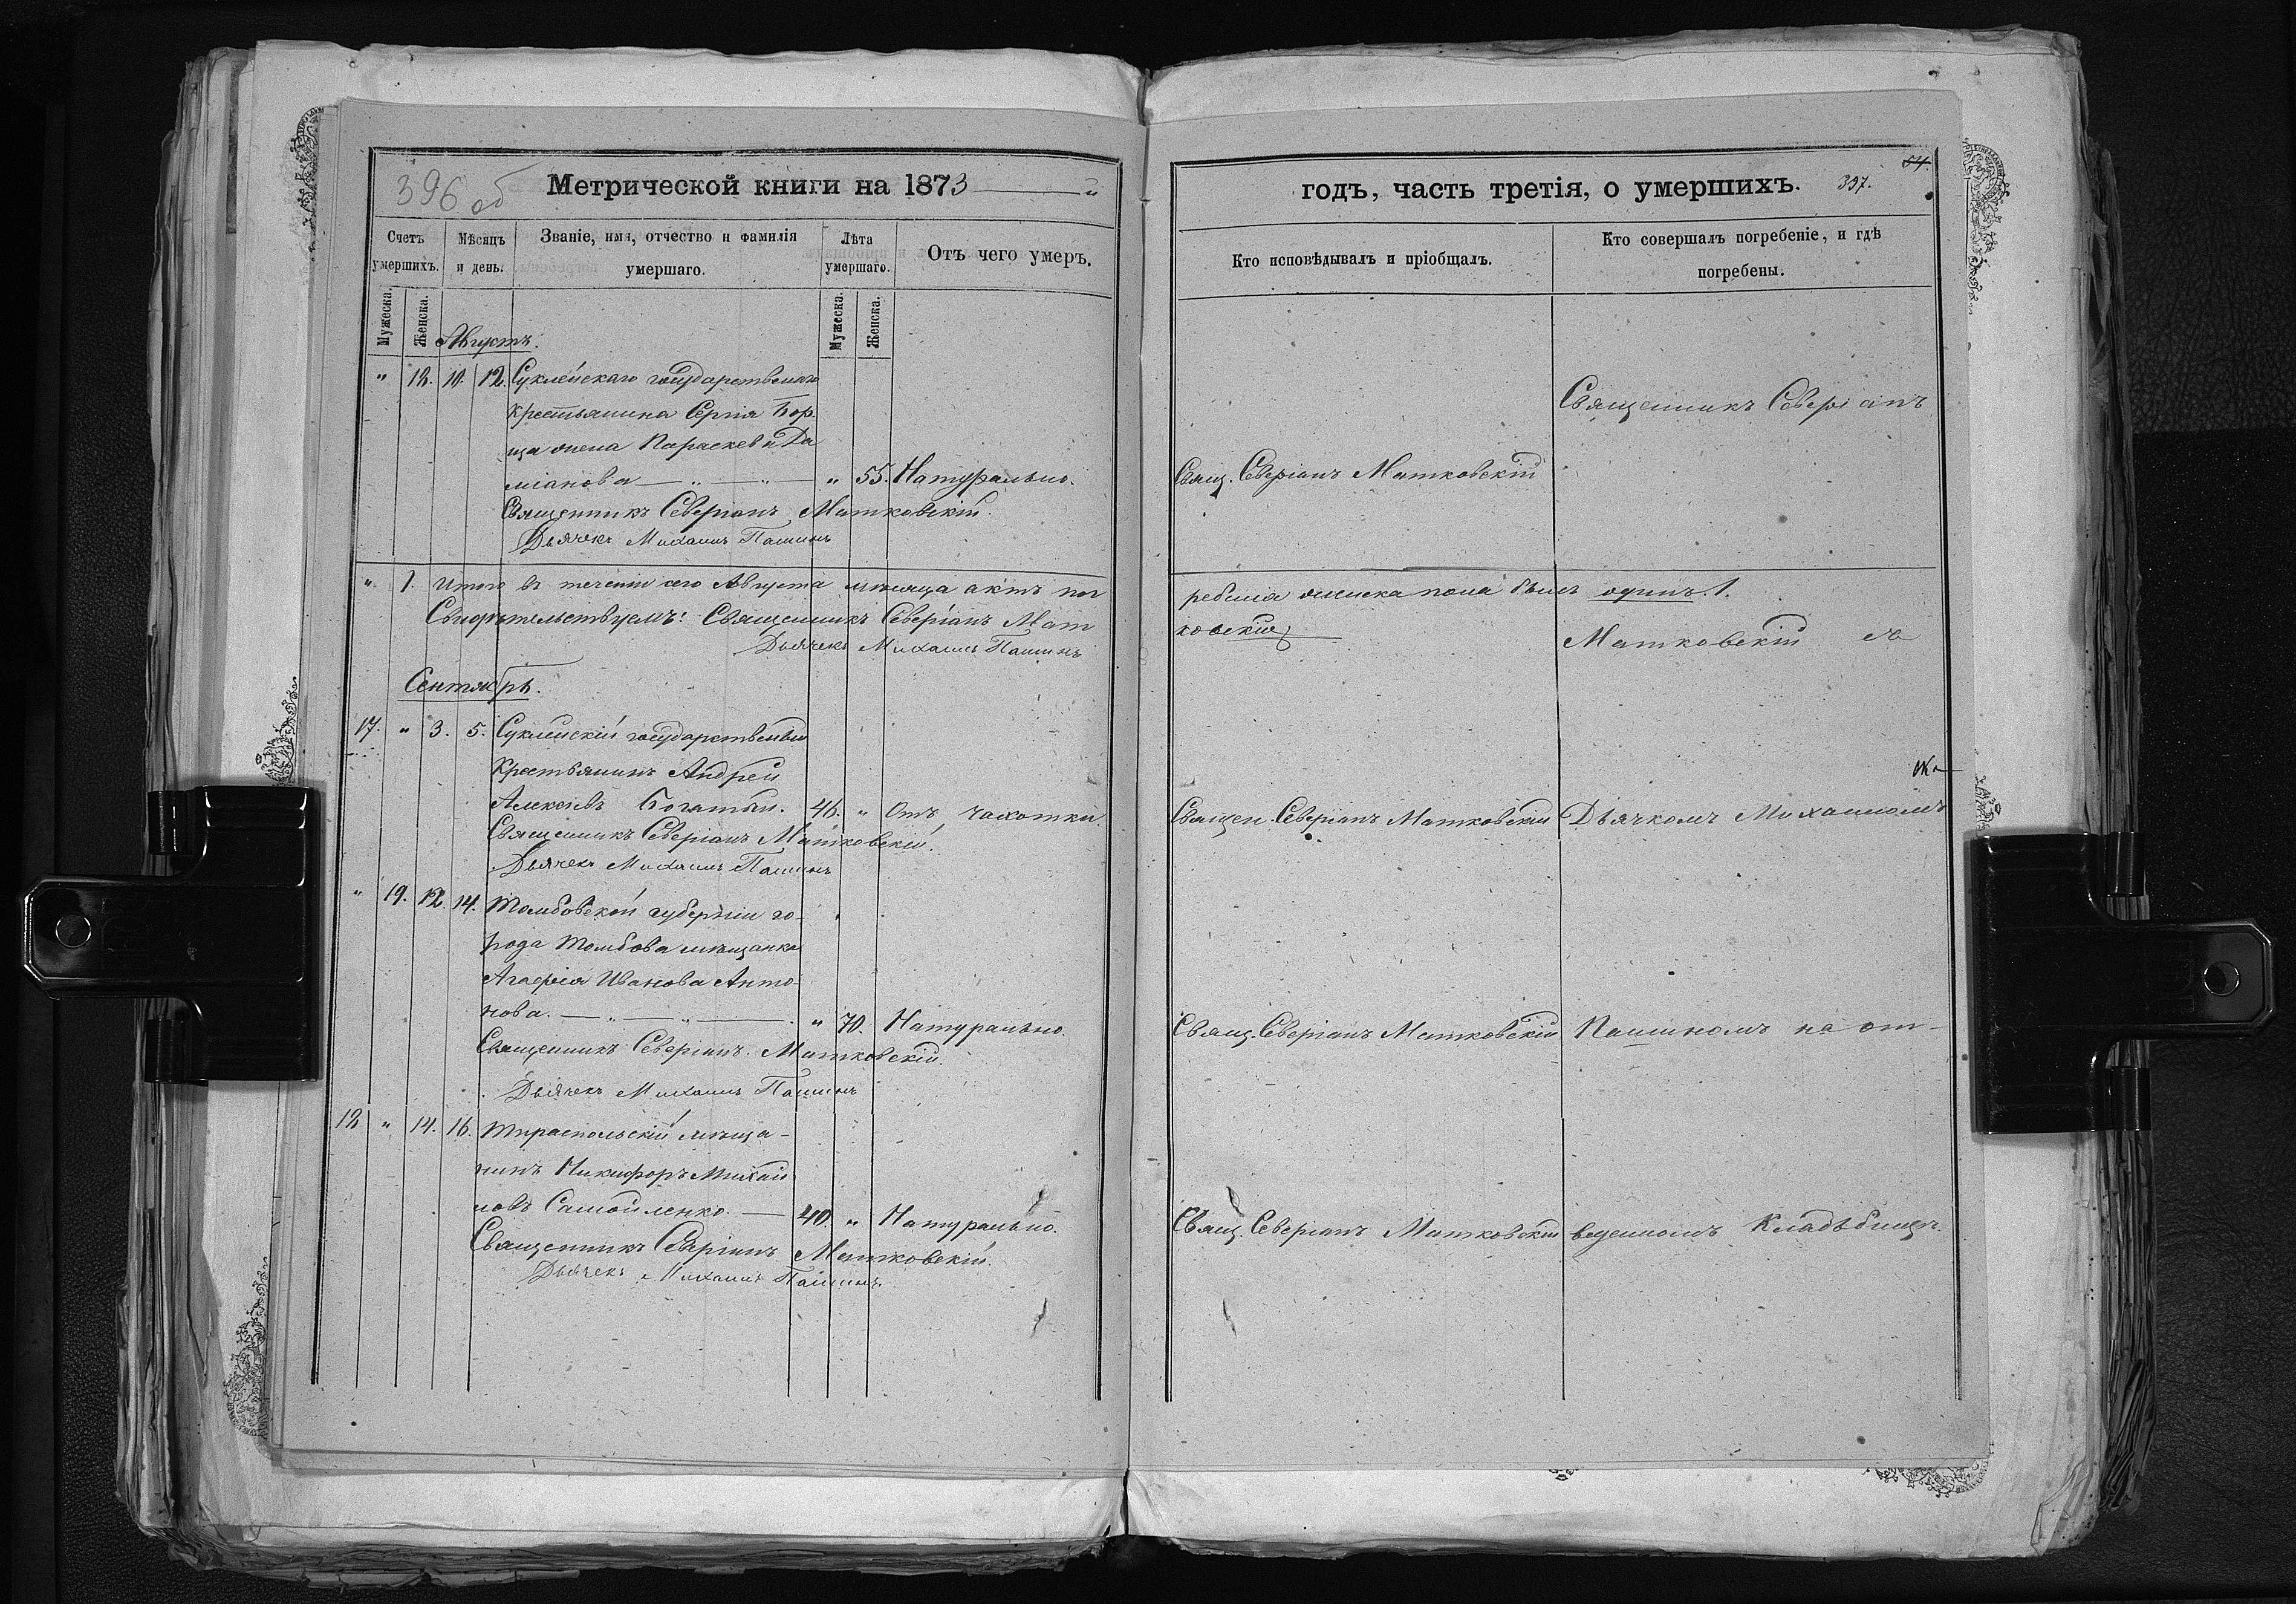 396 об
Метрической книги на 1873 — й
Счетъ умершихъ.
Мѣсяцъ и день.
Званіе, имя, отчество и фамилія умершаго.
Лѣта умершаго.
Отъ чего умеръ.
Мужеска.
Женска.
Мужеска.
Женска.
Августъ.
" 18. 10. 12. Суклейскаго государственнаго
крестьянина Сергія Бор
ща жена Параскева Да
міанова — " — " — " 55. Натурально.
Священникъ Северіанъ Матковскій.
Дьячекъ Михаилъ Пашинъ
" 1. Итого въ теченіи сего Августа мѣсяца актъ пог
Свидѣтельствуемъ: Священникъ Северіанъ Мат
Дьячекъ Михаилъ Пашинъ
Сентябрь.
17. " 3. 5. Суклейскій государственный
крестьянинъ Андрей
Алексіевъ Богатый. 46. " Отъ чахотки.
Священникъ Северіанъ Матковскій.
Дьячекъ Михаилъ Пашинъ
" 19. 12. 14. Тамбовской губерніи го-
рода Тамбова мѣщанка
Агафія Иванова Анто-
нова. — " — " — " 70. Натурально.
Священникъ Северіанъ Матковскій.
Дьячекъ Михаилъ Пашинъ
18 " 14. 16. Тираспольскій мѣща-
нинъ Никифоръ Михай
ловъ Самойленко — 40. " Натурально.
Священникъ Северіанъ Матковскій.
Дьячекъ Михаилъ Пашинъ.
годъ, часть третія, о умершихъ. 397.
54.
Кто исповѣдывалъ и пріобщалъ.
Кто совершалъ погребеніе, и гдѣ погребены.
Священникъ Северіанъ
Свящ. Северіанъ Матковскій
ребенія женска пола былъ одинъ. 1.
ковскій
Матковскій съ
Священ. Северіанъ Матковскій Дьячкомъ Михаиломъ
Свящ. Северіанъ Матковскій Пашиномъ на от-
Свящ. Северіанъ Матковскій веденномъ Кладбищѣ.